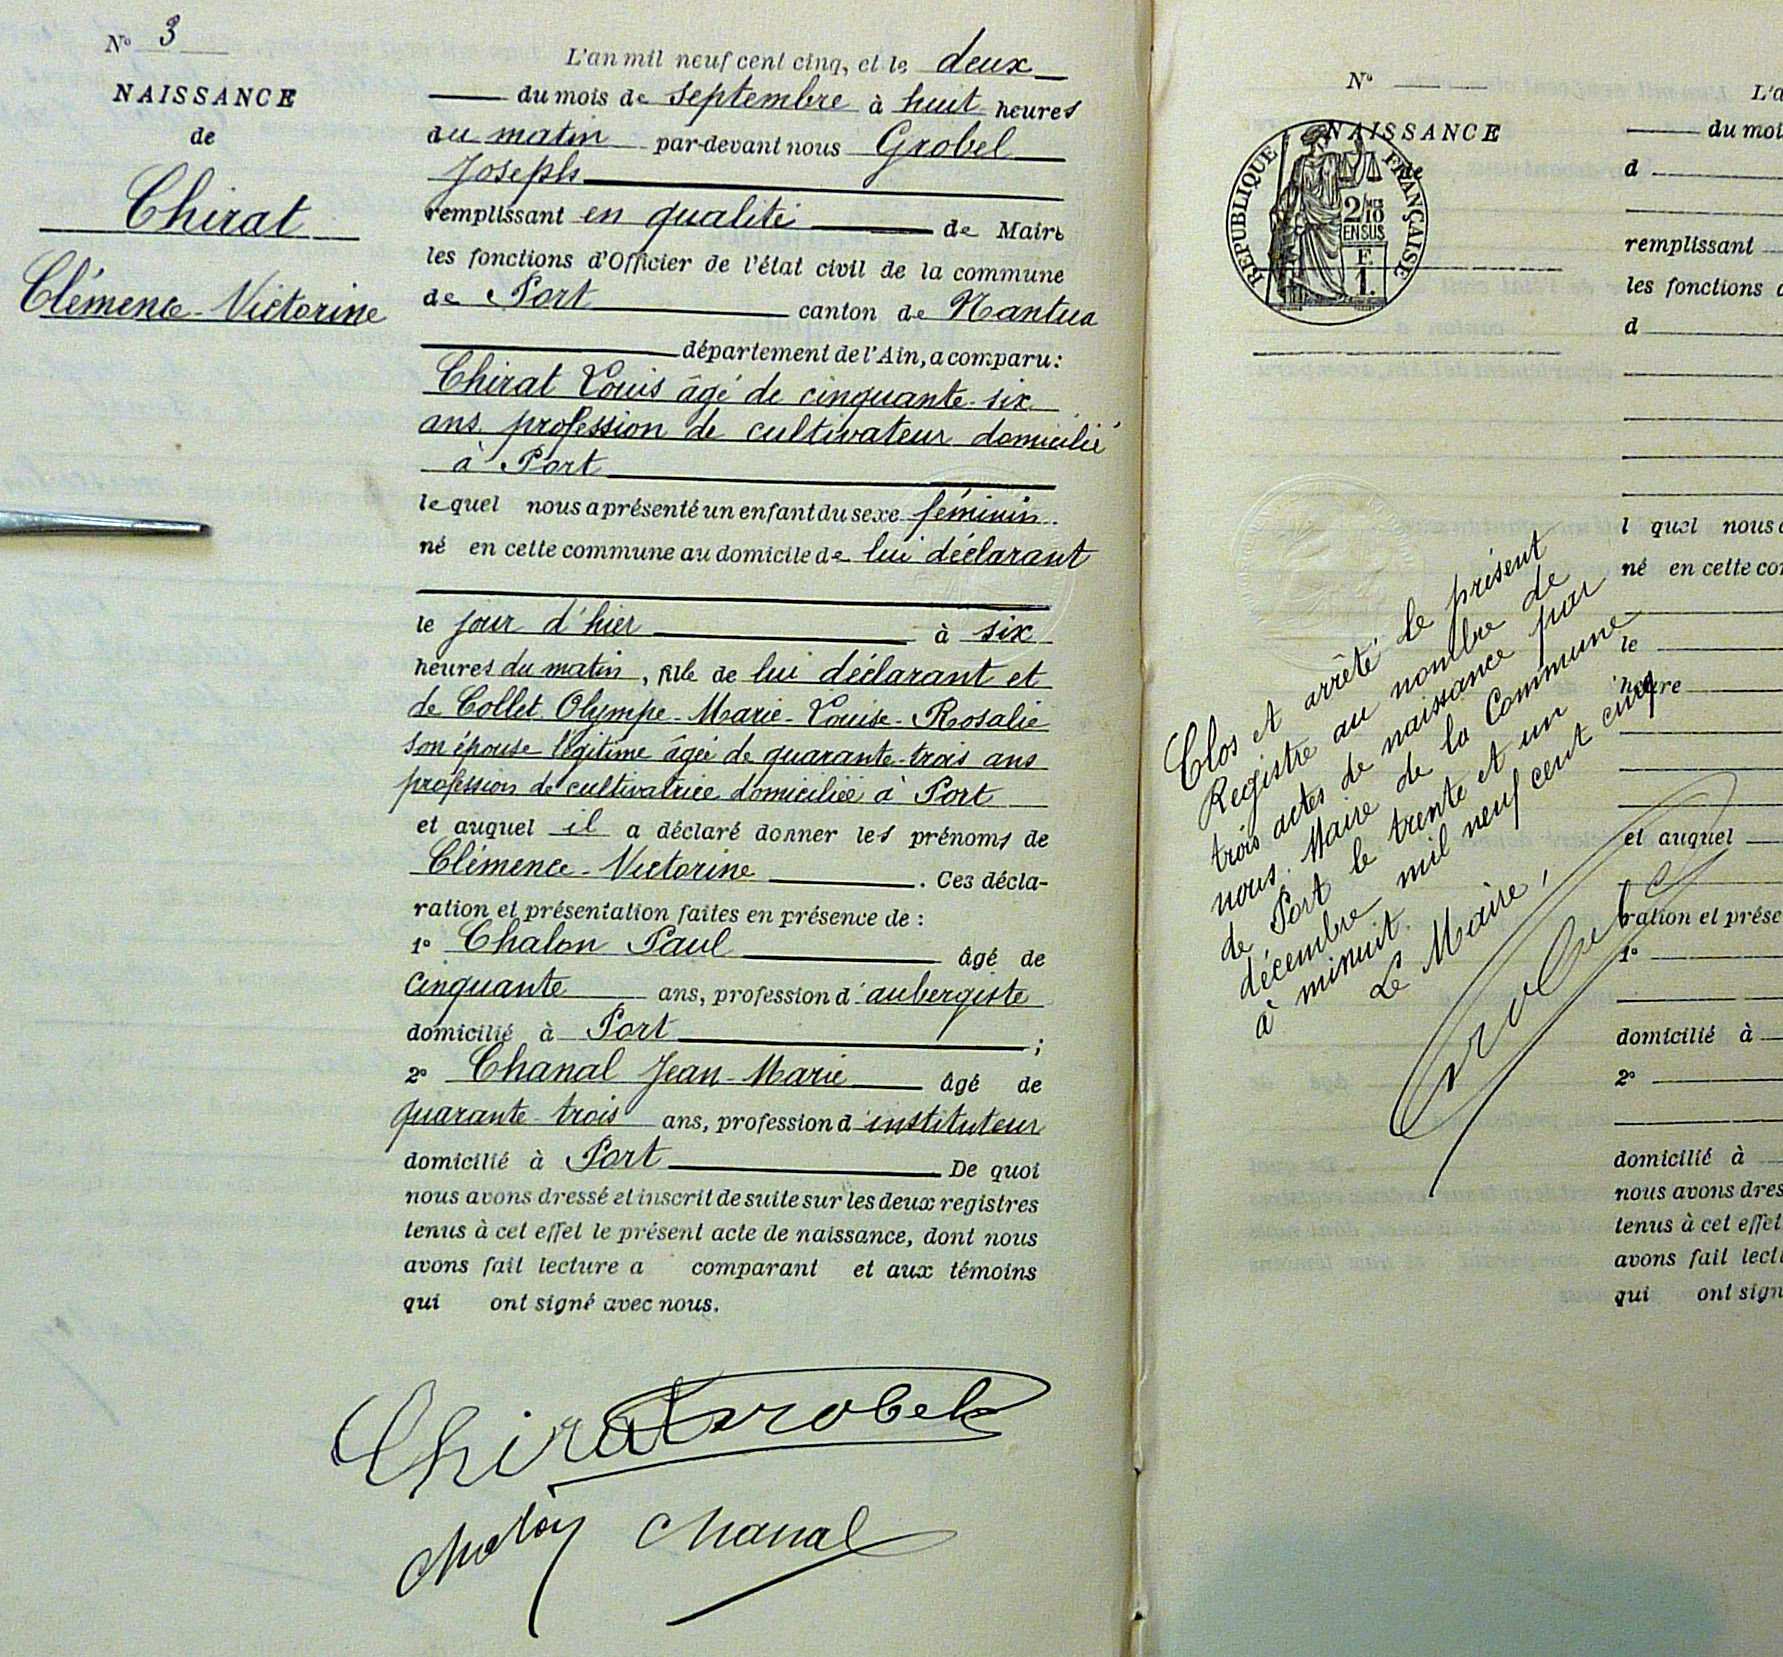 N° 3
NAISSANCE
de
Chirat
Clémence-Victorine
L'an mil neuf cent cinq, et le deux
du mois de septembre à huit heures
du matin par-devant nous Grobel
Joseph
remplissant en qualité de Maire
les fonctions d'Officier de l'état civil de la commune
de Port canton de Nantua
département de l'Ain, a comparu:
Chirat Louis âgé de cinquante-six
ans profession de cultivateur domicilié
à Port
lequel nous a présenté un enfant du sexe féminin.
né en cette commune au domicile de lui déclarant
le jour d'hier à six
heures du matin, fille de lui déclarant et
de Collet Olympe-Marie-Louise-Rosalie
son épouse légitime âgée de quarante-trois ans
profession de cultivatrice domiciliée à Port
et auquel il a déclaré donner les prénoms de
Clémence-Victorine. Ces décla-
ration et présentation faites en présence de :
1° Chalon Paul âgé de
cinquante ans, profession d'aubergiste
domicilié à Port ;
2° Chanal Jean-Marie âgé de
quarante-trois ans, profession d'instituteur
domicilié à Port De quoi
nous avons dressé et inscrit de suite sur les deux registres
tenus à cet effet le présent acte de naissance, dont nous
avons fait lecture a comparant et aux témoins
qui ont signé avec nous.
Chirat Grobel
Chalon Chanal
N°
NAISSANCE
de
RÉPUBLIQUE FRANÇAISE
2/10 MES
EN SUS
F.
1.
Clos et arrêté le présent
Registre au nombre de
trois actes de naissance par
nous, Maire de la Commune
de Port le trente et un
décembre mil neuf cent cinq
à minuit.
Le Maire,
Grobel
L'a
du moi
d
remplissant
les fonctions d
d
l quel nous a
né en cette co
le
heure
et auquel
ration et prése
1°
domicilié à
2°
domicilié à
nous avons dres
tenus à cet effet
avons fait lect
qui ont sign